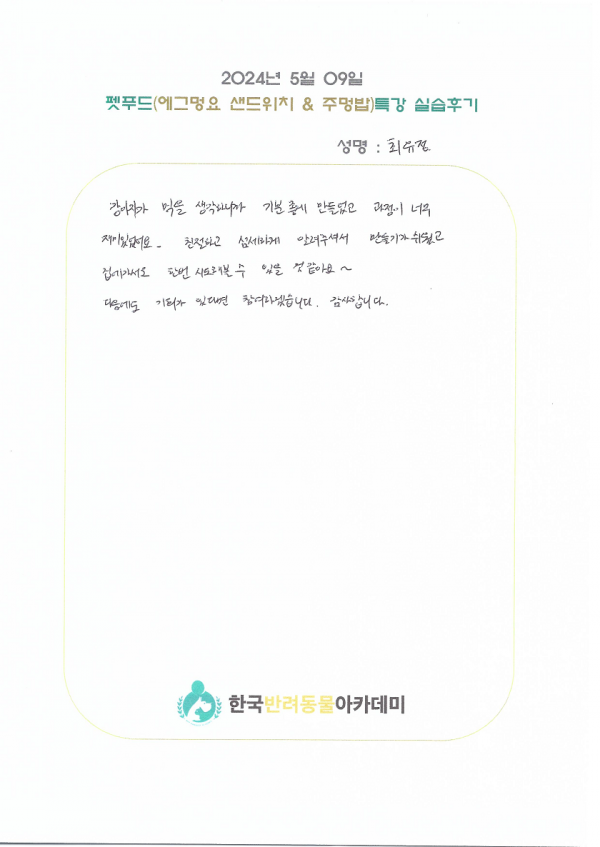 2024년 5월 09일
펫푸드(에그멍요 샌드위치 & 주멍밥)특강 실습후기
성명 : 최유정
강아지가 먹을 생각하니까 기분 좋게 만들었고 과정이 너무
재미있었어요. 친절하고 섬세하게 알려주셔서 만들기가 쉬웠고
집에가서도 한번 시도해볼 수 있을 것 같아요~
다음에도 기회가 있다면 참여하겠습니다. 감사합니다.
한국반려동물아카데미